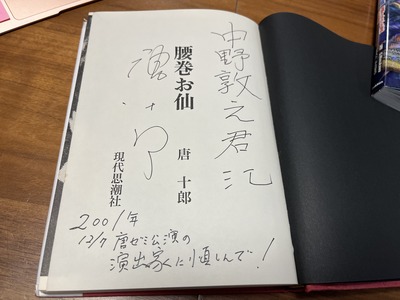 中野敦之君江
腰巻お仙
唐 十郎
唐十郎
現代思潮社
2001年
12/7 唐ゼミ公演の
演出家に